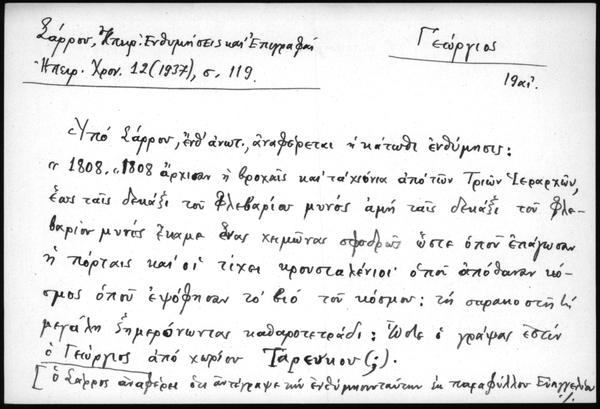 Σάρρου, Ἠπειρ. Ἐνθυμήσεις καὶ Ἐπιγραφαὶ
Ἠπειρ. Χρον. 12 (1937), σ. 119.
Γεώργιος
19 αἰ.
Ὑπὸ Σάρρου, ἔνθ' ἀνωτ., ἀναφέρεται ἡ κάτωθι ἐνθύμησις:
«1808. «1808 ἄρχισαν ἡ βροχαῖς καὶ τὰ χιόνια ἀπὸ τῶν Τριῶν Ἱεραρχῶν,
ἕως ταῖς δεκάξι τοῦ Φλεβαρίου μυνός ἀμή ταῖς δεκάξι τοῦ Φλε-
βαρίου μυνός ἔκαμε ἕνας χειμῶνας σφοδρῶς ὥστε ὁποῦ ἐπάγωσαν
ἡ πόρταις καὶ οἱ τίχει κρουσταλένιοι· ὁποῦ ἀπόθαναν κό-
σμος ὁποῦ ἐψόφησαν τὸ βιό τοῦ κόσμου: τῆ σαρακοστῆ
μεγάλη ξημερόνωντας καθαροτετράδι: Ὧδε ὁ γράψας ἐστίν
ὁ Γεώργιος ἀπό χωρίον Τάρευκου (;).
[ὁ Σάρρος ἀναφέρει ὅτι ἀντέγραψε τὴν ἐνθύμησιν ταύτην ἐκ παραφύλλου Εὐαγγελίου